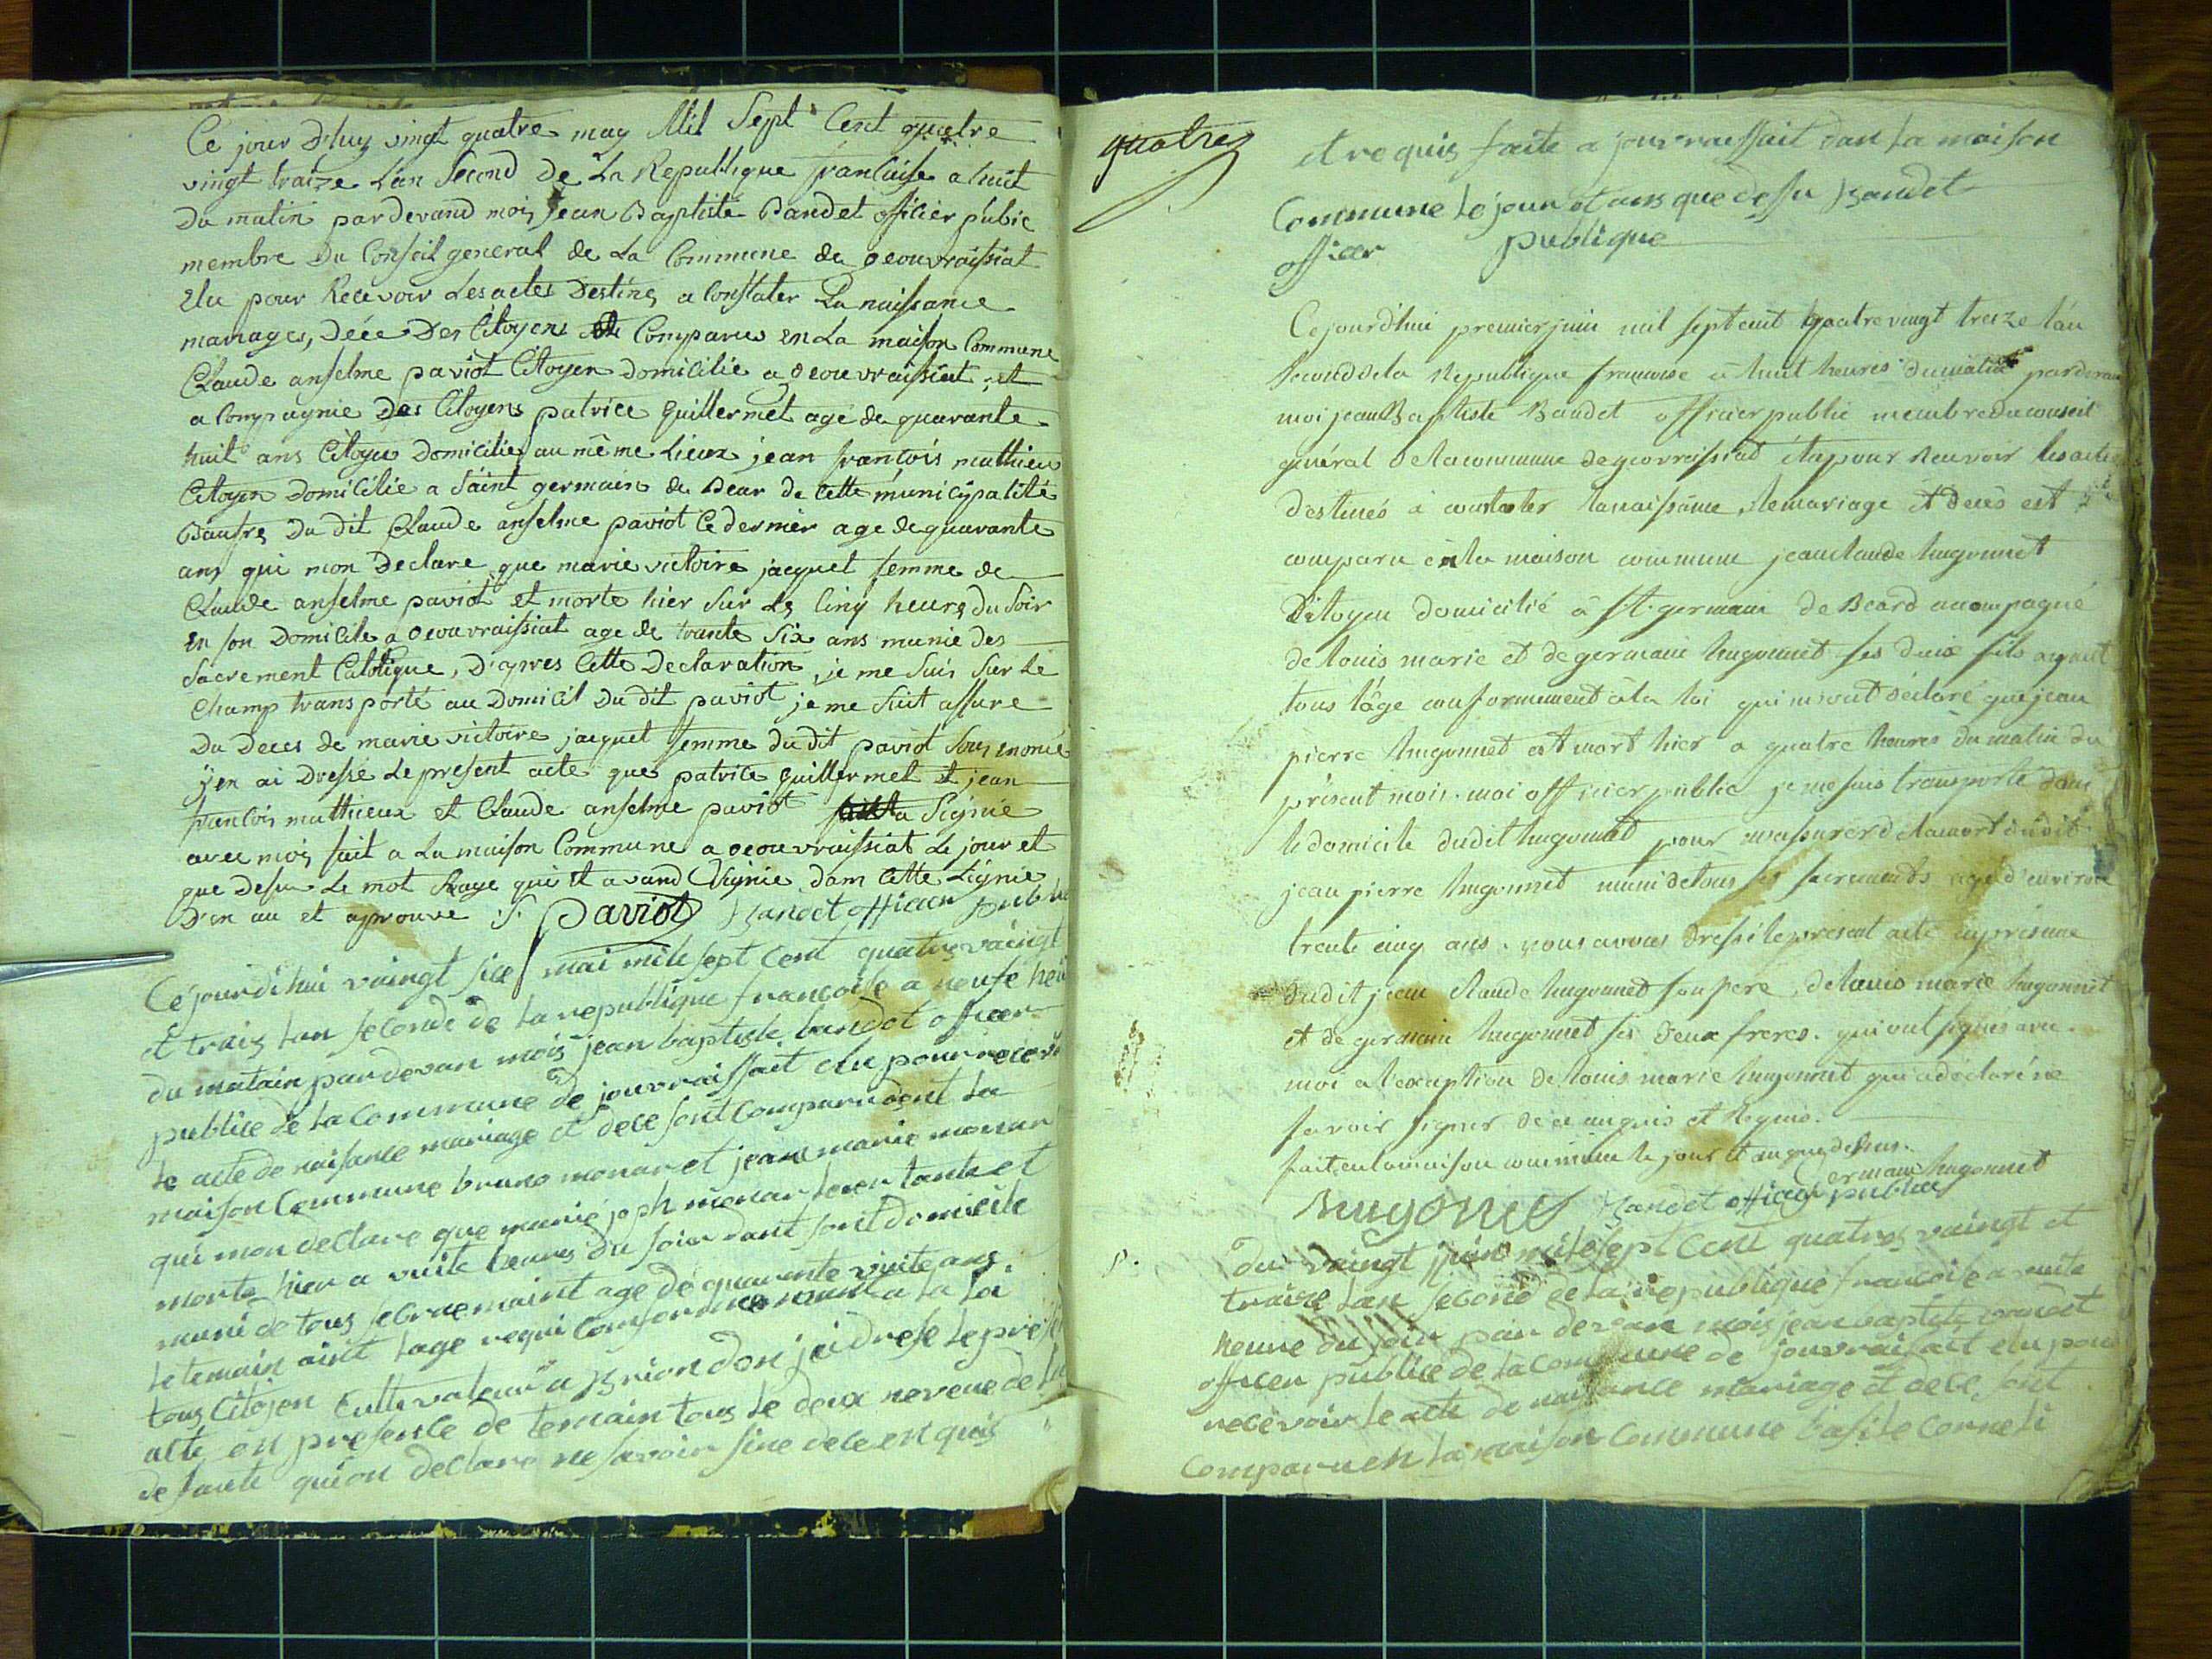 Ce jour D'huy vingt quatre may Mil Sept Cent quatre
vingt traize L'an Second De La Republique francaise a huit
Du matin pardevand moi, Jean Baptiste Bandet officier public
membre Du Conseil general de La Commune de Geouvraissiat
Elu pour Recevoir Les actes Destinés a Constater La naissance
mariages, Décé Des Citoyens Comparus en La maison Commune
Claude anselme paviot Citoyen domicilié a Geouvraissiat, et
a Compagnie Des Citoyens patrice guillermet agé de quarante
huit ans Citoyen Domicilié au même Lieux jean francois mathieu
Citoyen Domicilié a Saint germain de Bear de Cette municipalité
Du dit Claude anselme paviot Ce dernier age de quarante
ans qui mon Declare que marie victoire jacquet femme de
Claude anselme paviot et morte hier Sur Les Cinq heures du Soir
en son Domicile a Geouvraissiat age de trante Six ans munie des
Sacrement Catolique, D'apres Cette Declaration, je me Suis Sur Le
Champ transporté au Domicil Du dit paviot je me Suit assure
Du Deces de marie victoire jacquet femme du dit paviot Sous enoncé
j'en ai Dressé Le present acte que patrice guillermet et jean
francois mathieux et Claude anselme paviot a Signié
avec moi, fait a La maison Commune a Geouvraissiat Le jour et
que Desu Le mot Raye qui et avand Signié dam Cette Lignie
et aprouve Paviot Bandet officier public
Ce jourdihui vaingt sice mai mile sept cent quatre vaingt
et traiz lan seconde de la republique francoise a neufe heu
du matain par devan mois jean baptiste bandet officer
publice de la Commune de jouvraissait elu pour recevoi
le acte de naisance mariage et dece sont Comparu dent la
maison Commune bruno monar et jeane marie monar
qui mon declare que marie joph monar leur tante et
morte hier a vuite heures du soir dant sont domicile
muni de tous age de quarente vuite ans
le temain aint lage requi Conformemant a la loi
tous Citoyen Cultevateur a Brion don jei drese le prese
alte en presence de temain tous le deux neveue de la
defante qui on declare ne savoir sine dece enquis
quatre
et requis faite a jouvraissait dan la maison
Commune le jour et ans que desu Bandet
officer publique
Cejourd'hui premier juin mil sept cent quatre vingt treize l'an
second de la Republique francoise à huit heures du matin pardevan
moi jean Baptiste Bandet officier public membre du conseil
général de la commune de geovraissiat élu pour recevoir les actes
destinés à constater la naissance, le mariage et décès est
comparu en la maison commune jean claude hugonnet
Citoyen domicilié à St. germain de Beard accompagné
de louis marie et de germain hugonnet ses deux fils ayant
tous l'âge conformement à la loi qui m'ont déclaré que jean
pierre hugonnet est mort hier a quatre heures du matin du
présent mois. moi officier public je me suis transporté dans
le domicile dudit hugonnet pour m'assurer de la mort dudit
jean pierre hugonnet muni de tous ses sacrements agé d'environ
trente cinq ans. nous avons dressé le présent acte en présence
dudit jean claude hugonnet son pere, de louis marie hugonnet
et de germain hugonnet ses deux freres. qui ont signés avec
moi a l'exception de louis marie hugonnet qui a déclaré ne
savoir signer de ce enquis et Requis.
fait en la maison commune le jour et an que dessus.
Germain hugonnet
hugonnet Bandet officier public
Du vaingt juin mile sept cent quatre vaingt et
traize lan second de la republique francoise a vuite
heure du soir par devan mois jean baptiste bandet
officer publice de la Commune de jouvraisait elu pou
recevoir le acte de naisance mariage et dece, eint
Comparu en la maison Commune basile Corneli